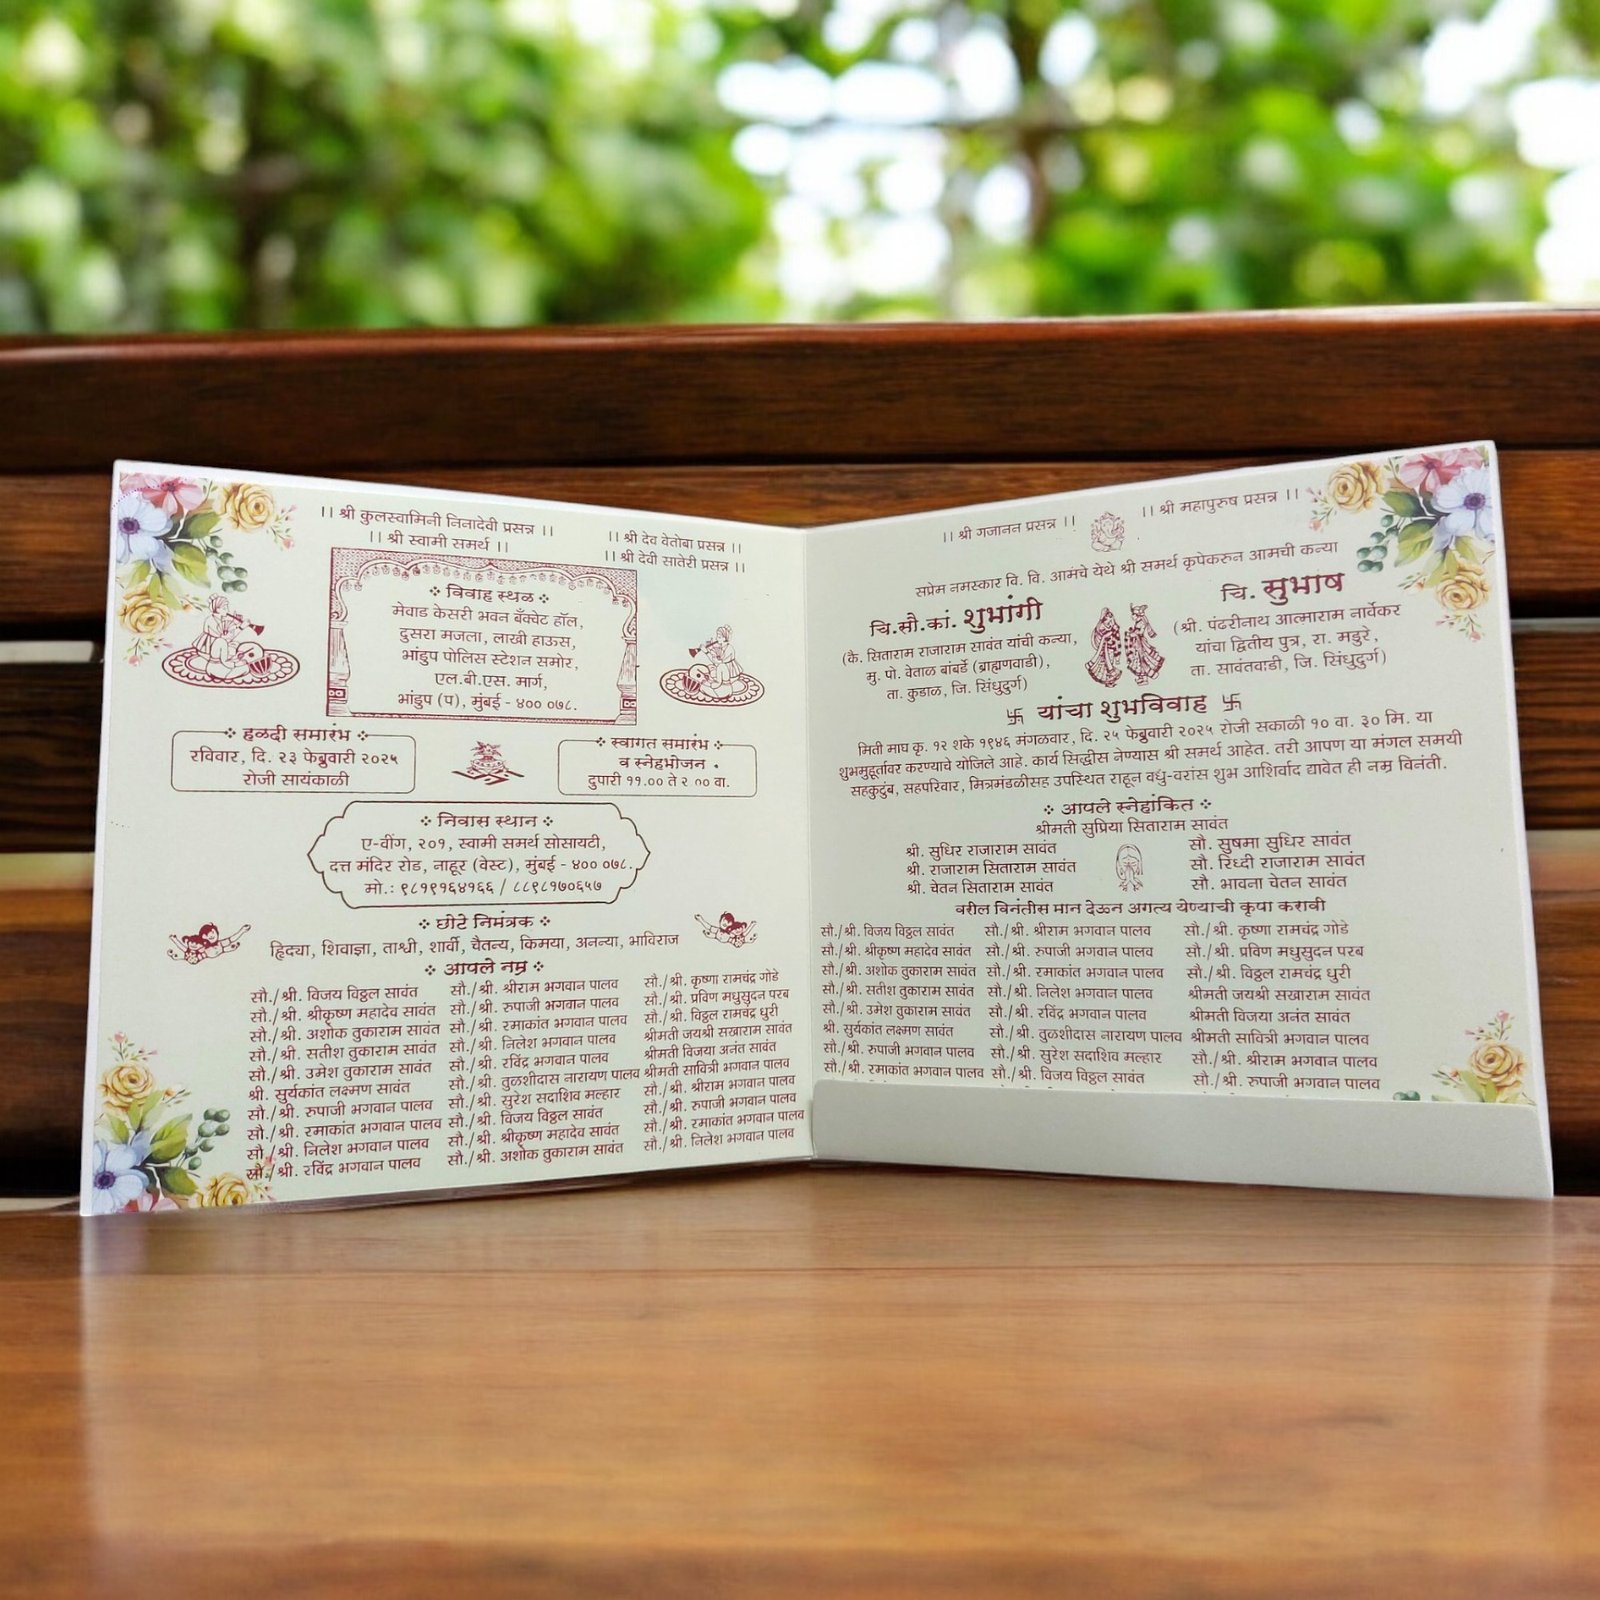 ।। श्री कुलस्वामिनी निनादेवी प्रसन्न ।।
।। श्री स्वामी समर्थ ।।
।। श्री देव वेतोबा प्रसन्न ।।
।। श्री देवी सातेरी प्रसन्न ।।
विवाह स्थळ
मेवाड केसरी भवन बँक्वेट हॉल,
दुसरा मजला, लाखी हाऊस,
भांडुप पोलिस स्टेशन समोर,
एल.बी.एस. मार्ग,
भांडुप (प), मुंबई - ४०० ०७८.
हळदी समारंभ
रविवार, दि. २३ फेब्रुवारी २०२५
रोजी सायंकाळी
स्वागत समारंभ
व स्नेहभोजन
दुपारी ११.०० ते २.०० वा.
निवास स्थान
ए-वींग, २०१, स्वामी समर्थ सोसायटी,
दत्त मंदिर रोड, नाहूर (वेस्ट), मुंबई - ४०० ०७८.
मो.: ९८१९१६४१६६ / ८८९८१७०६५७
छोटे निमंत्रक
ह्रिद्या, शिवाज्ञा, ताश्वी, शार्वी, चैतन्य, किमया, अनन्या, भाविराज
आपले नम्र
सौ./श्री. विजय विठ्ठल सावंत
सौ./श्री. श्रीकृष्ण महादेव सावंत
सौ./श्री. अशोक तुकाराम सावंत
सौ./श्री. सतीश तुकाराम सावंत
सौ./श्री. उमेश तुकाराम सावंत
श्री. सुर्यकांत लक्ष्मण सावंत
सौ./श्री. रुपाजी भगवान पालव
सौ./श्री. रमाकांत भगवान पालव
सौ./श्री. निलेश भगवान पालव
सौ./श्री. रविंद्र भगवान पालव
सौ./श्री. श्रीराम भगवान पालव
सौ./श्री. रुपाजी भगवान पालव
सौ./श्री. रमाकांत भगवान पालव
सौ./श्री. निलेश भगवान पालव
सौ./श्री. रविंद्र भगवान पालव
सौ./श्री. तुळशीदास नारायण पालव
सौ./श्री. सुरेश सदाशिव मल्हार
सौ./श्री. विजय विठ्ठल सावंत
सौ./श्री. श्रीकृष्ण महादेव सावंत
सौ./श्री. अशोक तुकाराम सावंत
सौ./श्री. कृष्णा रामचंद्र गोडे
सौ./श्री. प्रविण मधुसुदन परब
सौ./श्री. विठ्ठल रामचंद्र धुरी
श्रीमती जयश्री सखाराम सावंत
श्रीमती विजया अनंत सावंत
श्रीमती सावित्री भगवान पालव
सौ./श्री. श्रीराम भगवान पालव
सौ./श्री. रुपाजी भगवान पालव
सौ./श्री. रमाकांत भगवान पालव
सौ./श्री. निलेश भगवान पालव
।। श्री गजानन प्रसन्न ।।
।। श्री महापुरुष प्रसन्न ।।
सप्रेम नमस्कार वि. वि. आमंचे येथे श्री समर्थ कृपेकरुन आमची कन्या
चि.सौ.कां. शुभांगी
(कै. सिताराम राजाराम सावंत यांची कन्या,
मु. पो. वेताळ बांबर्डे (ब्राह्मणवाडी),
ता. कुडाळ, जि. सिंधुदुर्ग)
चि. सुभाष
(श्री. पंढरीनाथ आत्माराम नार्वेकर
यांचा द्वितीय पुत्र, रा. मडुरे,
ता. सावंतवाडी, जि. सिंधुदुर्ग)
卐 यांचा शुभविवाह 卐
मिती माघ कृ. १२ शके १९४६ मंगळवार, दि. २५ फेब्रुवारी २०२५ रोजी सकाळी १० वा. ३० मि. या
शुभमुहूर्तावर करण्याचे योजिले आहे. कार्य सिद्धीस नेण्यास श्री समर्थ आहेत. तरी आपण या मंगल समयी
सहकुटुंब, सहपरिवार, मित्रमंडळीसह उपस्थित राहून वधु-वरांस शुभ आशिर्वाद द्यावेत ही नम्र विनंती.
आपले स्नेहांकित
श्रीमती सुप्रिया सिताराम सावंत
श्री. सुधिर राजाराम सावंत
श्री. राजाराम सिताराम सावंत
श्री. चेतन सिताराम सावंत
सौ. सुषमा सुधिर सावंत
सौ. रिध्दी राजाराम सावंत
सौ. भावना चेतन सावंत
वरील विनंतीस मान देऊन अगत्य येण्याची कृपा करावी
सौ./श्री. विजय विठ्ठल सावंत
सौ./श्री. श्रीकृष्ण महादेव सावंत
सौ./श्री. अशोक तुकाराम सावंत
सौ./श्री. सतीश तुकाराम सावंत
सौ./श्री. उमेश तुकाराम सावंत
श्री. सुर्यकांत लक्ष्मण सावंत
सौ./श्री. रुपाजी भगवान पालव
सौ./श्री. रमाकांत भगवान पालव
सौ./श्री. श्रीराम भगवान पालव
सौ./श्री. रुपाजी भगवान पालव
सौ./श्री. रमाकांत भगवान पालव
सौ./श्री. निलेश भगवान पालव
सौ./श्री. रविंद्र भगवान पालव
सौ./श्री. तुळशीदास नारायण पालव
सौ./श्री. सुरेश सदाशिव मल्हार
सौ./श्री. विजय विठ्ठल सावंत
सौ./श्री. कृष्णा रामचंद्र गोडे
सौ./श्री. प्रविण मधुसुदन परब
सौ./श्री. विठ्ठल रामचंद्र धुरी
श्रीमती जयश्री सखाराम सावंत
श्रीमती विजया अनंत सावंत
श्रीमती सावित्री भगवान पालव
सौ./श्री. श्रीराम भगवान पालव
सौ./श्री. रुपाजी भगवान पालव